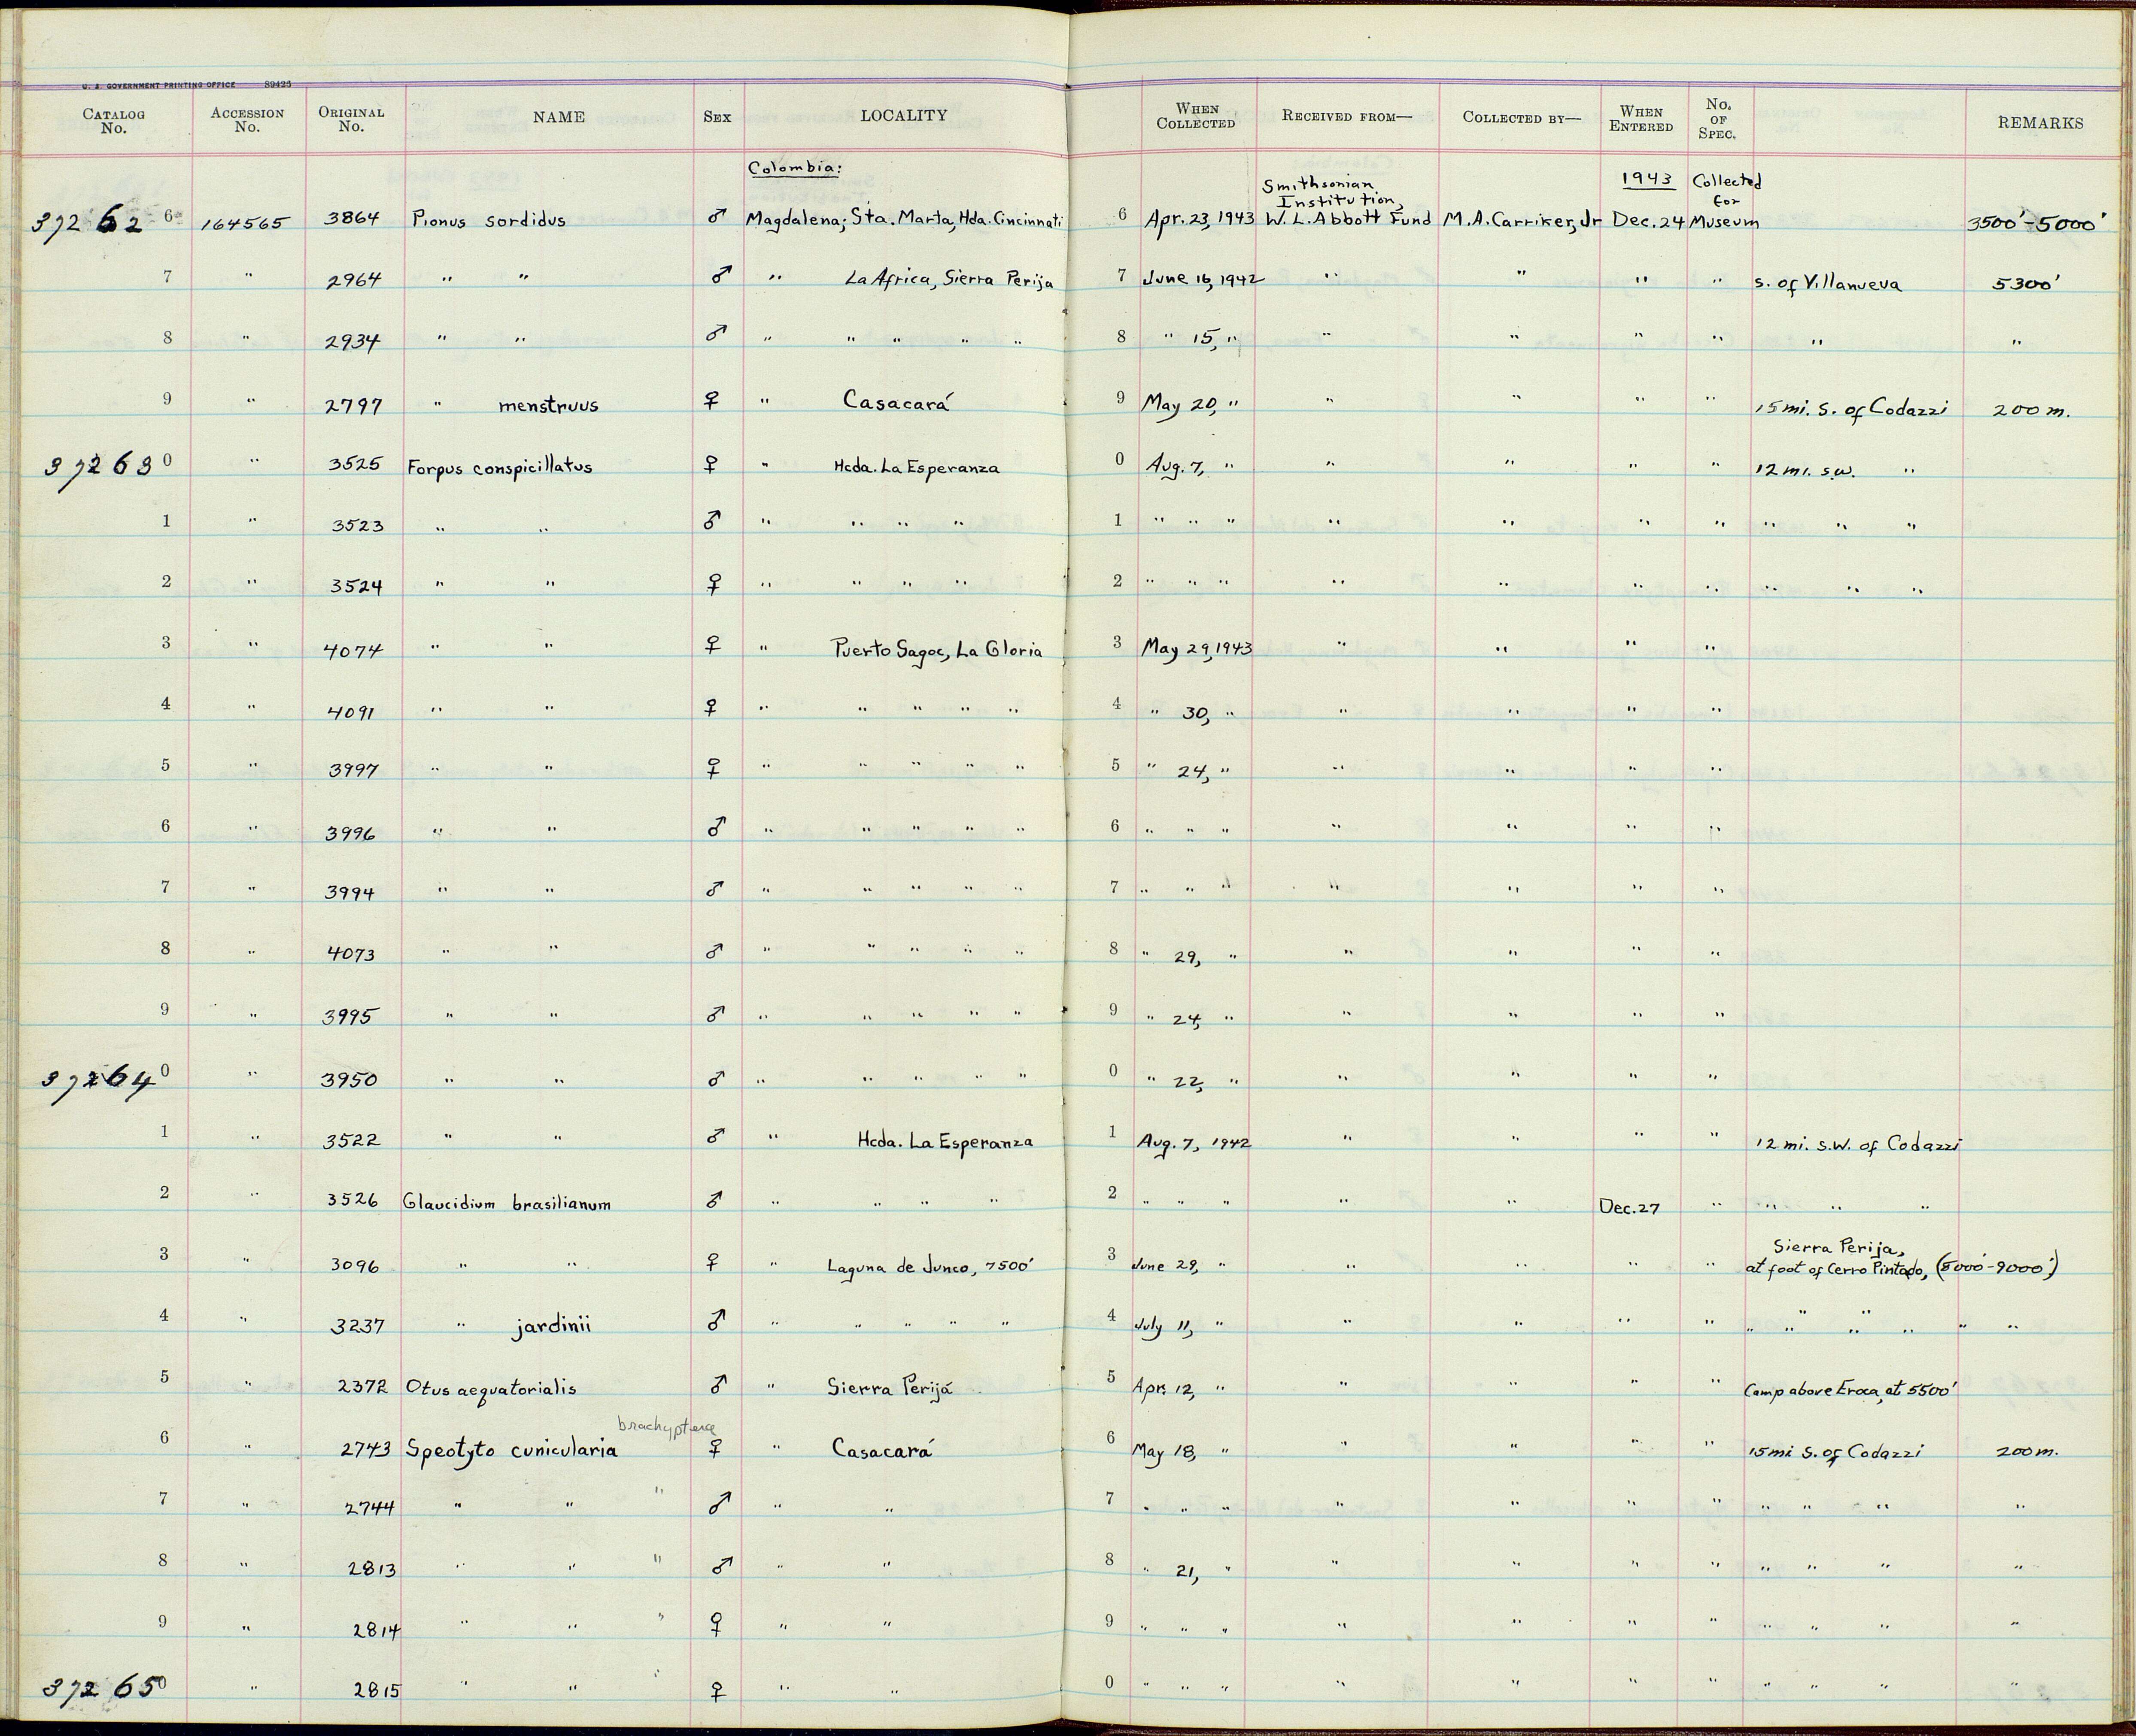 U. S. GOVERNMENT PRINTING OFFICE 89425
CATALOG No. ACCESSION No. ORIGINAL No. NAME SEX LOCALITY WHEN COLLECTED RECEIVED FROM— COLLECTED BY— WHEN ENTERED No. OF SPEC. REMARKS
Colombia: Smithsonian Institution, 1943 Collected for
372 62 6 164565 3864 Pionus sordidus ♂ Magdalena; Sta. Marta, Hda. Cincinnati 6 Apr. 23, 1943 W. L. Abbott Fund M. A. Carriker, Jr Dec. 24 Museum 3500' – 5000'
7 " 2964 " " ♂ " La Africa, Sierra Perija 7 June 16, 1942 " " " " s. of Villanueva 5300'
8 " 2934 " " ♂ " " " " " 8 " 15, " " " " " " "
9 " 2797 " menstruus ♀ " Casacará 9 May 20, " " " " " 15 mi. S. of Codazzi 200 m.
37263 0 " 3525 Forpus conspicillatus ♀ " Hcda. La Esperanza 0 Aug. 7, " " " " " 12 mi. s.w. "
1 " 3523 " " ♂ " " " " 1 " " " " " " " " " "
2 " 3524 " " ♀ " " " " 2 " " " " " " " " " "
3 " 4074 " " ♀ " Puerto Sagoc, La Gloria 3 May 29, 1943 " " " "
4 " 4091 " " ♀ " " " " " 4 " 30, " " " " "
5 " 3997 " " ♀ " " " " " 5 " 24, " " " " "
6 " 3996 " " ♂ " " " " " 6 " " " " " " "
7 " 3994 " " ♂ " " " " " 7 " " " " " " "
8 " 4073 " " ♂ " " " " " 8 " 29, " " " " "
9 " 3995 " " ♂ " " " " " 9 " 24, " " " " "
37264 0 " 3950 " " ♂ " " " " " 0 " 22, " " " " "
1 " 3522 " " ♂ " Hcda. La Esperanza 1 Aug. 7, 1942 " " " " 12 mi. S.W. of Codazzi
2 " 3526 Glaucidium brasilianum ♂ " " " " 2 " " " " " Dec. 27 " " " "
3 " 3096 " " ♀ " Laguna de Junco, 7500' 3 June 29, " " " " " Sierra Perija,
at foot of Cerro Pintado, (8000'-9000')
4 " 3237 " jardinii ♂ " " " " " 4 July 11, " " " " " " " " " " " " "
5 " 2372 Otus aequatorialis ♂ " Sierra Perijá 5 Apr. 12, " " " " " Camp above Eroca, at 5500'
brachyptera
6 " 2743 Speotyto cunicularia ♀ " Casacará 6 May 18, " " " " " 15 mi S. of Codazzi 200 m.
7 " 2744 " " " ♂ " " 7 " " " " " " " " " " "
8 " 2813 " " " ♂ " " 8 " 21, " " " " " " " " "
9 " 2814 " " " ♀ " " 9 " " " " " " " " " " "
37265 0 " 2815 " " " ♀ " " 0 " " " " " " " " " " "